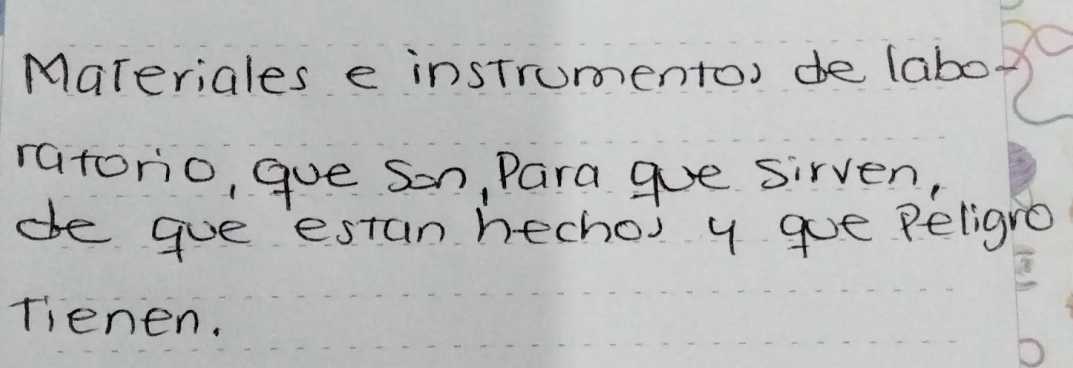 Materiales e instrumentos de labo-
ratorio, que son, Para que sirven,
de que estan hechos y que Peligro
Tienen.